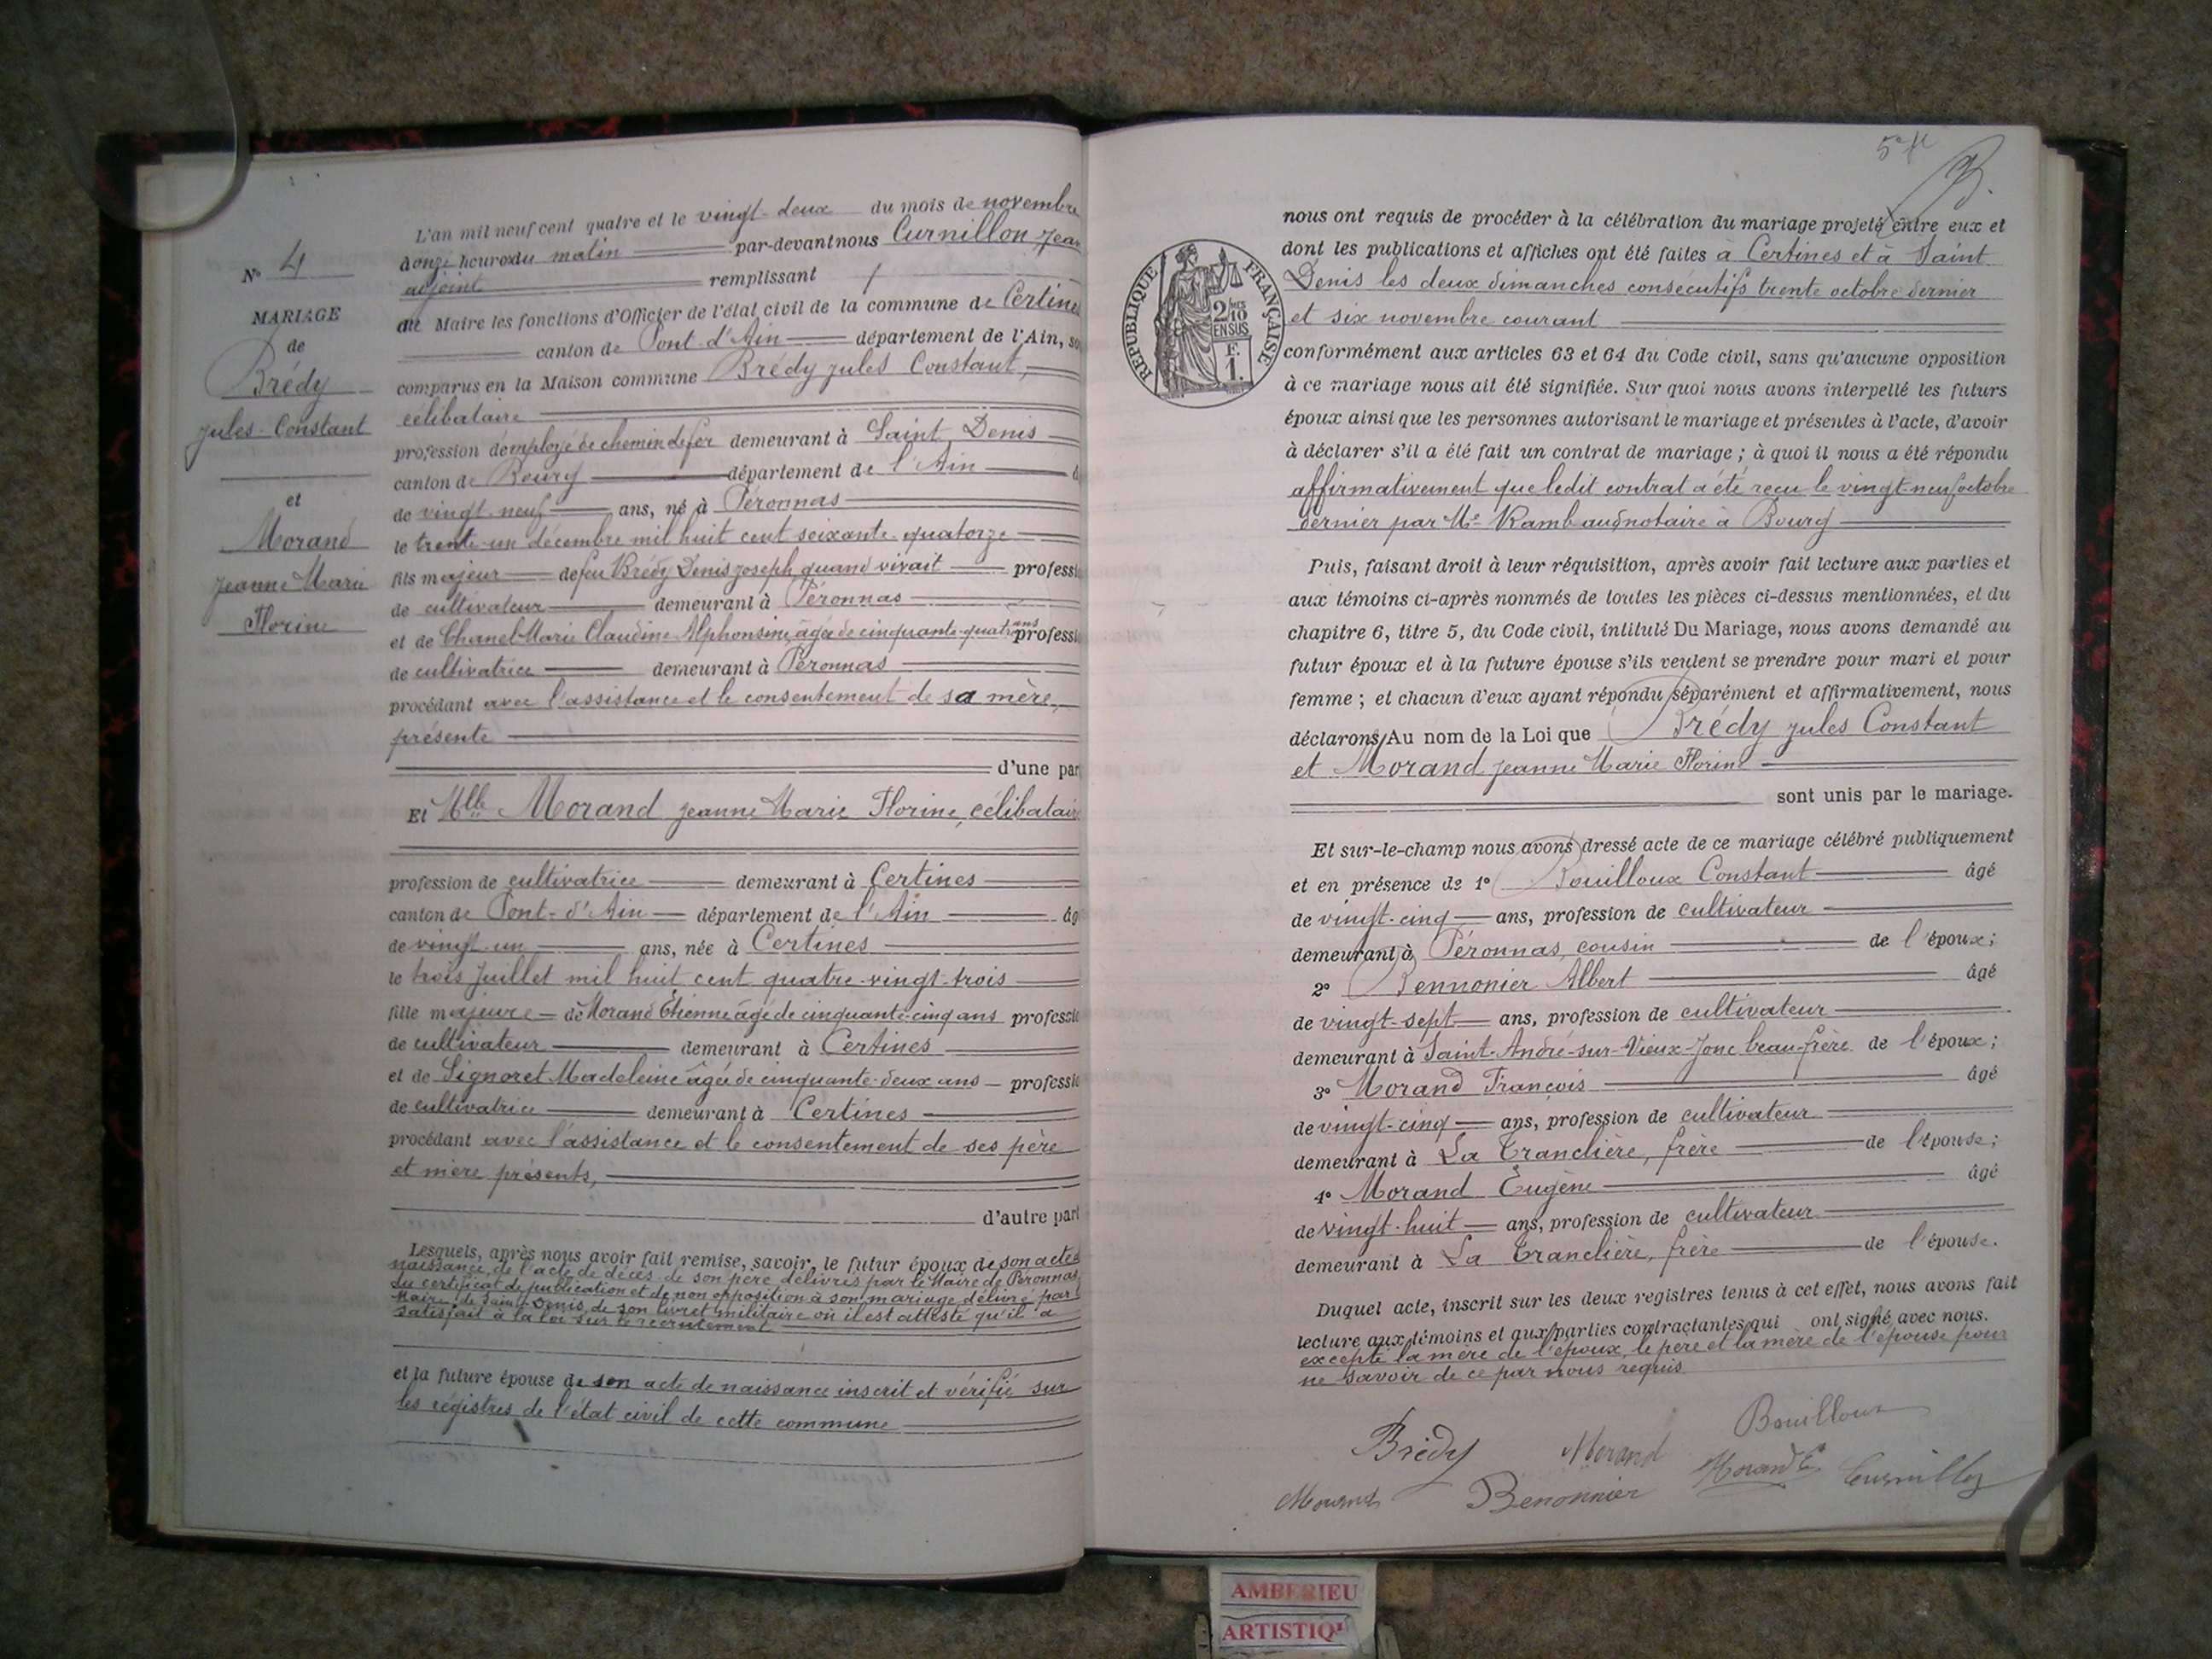 N° 4
MARIAGE
de
Brédy
Jules Constant
et
Morand
Jeanne Marie
Florine
L'an mil neuf cent quatre et le vingt-deux du mois de novembre
à onze heures du matin par-devant nous Curnillon Jean
adjoint remplissant
du Maire les fonctions d'Officier de l'état civil de la commune de Certines
canton de Pont-d'Ain département de l'Ain, so
comparus en la Maison commune Brédy Jules Constant,
célibataire
profession d'employé de chemin de fer demeurant à Saint Denis
canton de Bourg département de l'Ain
de vingt-neuf ans, né à Péronnas
le trente-un décembre mil huit cent soixante-quatorze
fils majeur de feu Brédy Denis Joseph quand vivait professi
de cultivateur demeurant à Péronnas
et de Chanel Marie Claudine Alphonsine, âgée de cinquante-quatre ans professi
de cultivatrice demeurant à Péronnas
procédant avec l'assistance et le consentement de sa mère,
présente
d'une par
Et Mlle Morand Jeanne Marie Florine, célibataire
profession de cultivatrice demeurant à Certines
canton de Pont-d'Ain département de l'Ain âg
de vingt-un ans, née à Certines
le trois Juillet mil huit cent quatre-vingt-trois
fille majeure de Morand Etienne âgé de cinquante-cinq ans professio
de cultivateur demeurant à Certines
et de Signoret Madeleine âgée de cinquante-deux ans professio
de cultivatrice demeurant à Certines
procédant avec l'assistance et le consentement de ses père
et mère présents,
d'autre part
Lesquels, après nous avoir fait remise, savoir, le futur époux de son acte de
naissance, de l'acte de décès de son père délivrés par le Maire de Péronnas
du certificat de publication et de non opposition à son mariage délivré par le
Maire de Saint-Denis, de son livret militaire où il est attesté qu'il a
satisfait à la loi sur le recrutement
et la future épouse de son acte de naissance inscrit et vérifié sur
les régistres de l'état civil de cette commune
RÉPUBLIQUE FRANÇAISE
2/10
EN SUS
F.
1.
nous ont requis de procéder à la célébration du mariage projeté entre eux et
dont les publications et affiches ont été faites à Certines et à Saint
Denis les deux dimanches consécutifs trente octobre dernier
et six novembre courant
conformément aux articles 63 et 64 du Code civil, sans qu'aucune opposition
à ce mariage nous ait été signifiée. Sur quoi nous avons interpellé les futurs
époux ainsi que les personnes autorisant le mariage et présentes à l'acte, d'avoir
à déclarer s'il a été fait un contrat de mariage ; à quoi il nous a été répondu
affirmativement que ledit contrat a été reçu le vingt-neuf octobre
dernier par Me Rambaud notaire à Bourg
Puis, faisant droit à leur réquisition, après avoir fait lecture aux parties et
aux témoins ci-après nommés de toutes les pièces ci-dessus mentionnées, et du
chapitre 6, titre 5, du Code civil, intitulé Du Mariage, nous avons demandé au
futur époux et à la future épouse s'ils veulent se prendre pour mari et pour
femme ; et chacun d'eux ayant répondu séparément et affirmativement, nous
déclarons Au nom de la Loi que Brédy Jules Constant
et Morand Jeanne Marie Florine
sont unis par le mariage.
Et sur-le-champ nous avons dressé acte de ce mariage célébré publiquement
et en présence de 1° Bouilloux Constant âgé
de vingt-cinq ans, profession de cultivateur
demeurant à Péronnas, cousin de l'époux;
2° Bennonier Albert âgé
de vingt-sept ans, profession de cultivateur
demeurant à Saint-André-sur-Vieux-Jonc beau-frère de l'époux;
3° Morand François âgé
de vingt-cinq ans, profession de cultivateur
demeurant à La Tranclière, frère de l'épouse;
4° Morand Eugène âgé
de vingt-huit ans, profession de cultivateur
demeurant à La Tranclière, frère de l'épouse.
Duquel acte, inscrit sur les deux registres tenus à cet effet, nous avons fait
lecture aux témoins et aux parties contractantes qui ont signé avec nous.
excepté la mère de l'époux, le père et la mère de l'épouse pour
ne savoir de ce par nous requis
Bouilloux
Brédy Morand Morand E. Curnillon
Morand Benonnier
AMBERIEU
ARTISTIQ